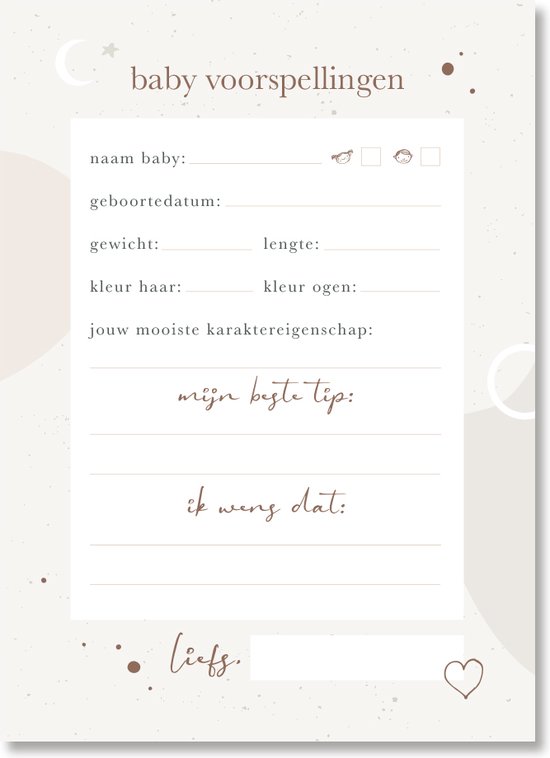 baby voorspellingen
naam baby:
geboortedatum:
gewicht: lengte:
kleur haar: kleur ogen:
jouw mooiste karaktereigenschap:
mijn beste tip:
ik wens dat:
liefs,